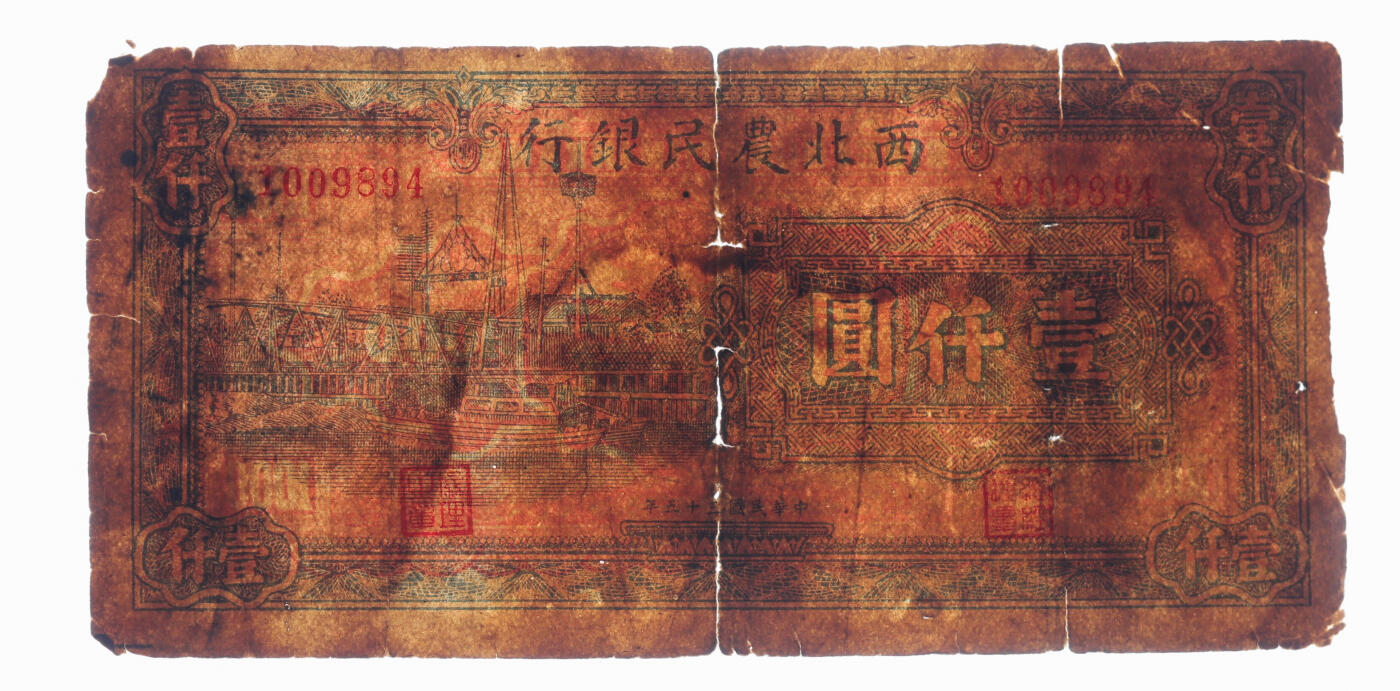 壹仟
西北農民銀行
壹仟
1009894
1009894
壹仟圓
中華民國三十五年
壹仟
壹仟